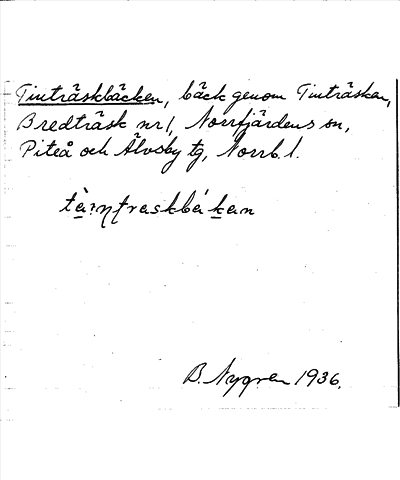 Tinträskbäcken, bäck genom Tinträsken,
Bredträsk nr 1, Norrfjärdens sn,
Piteå och Älvsby tg, Norrb. l.
B. Nygren 1936.